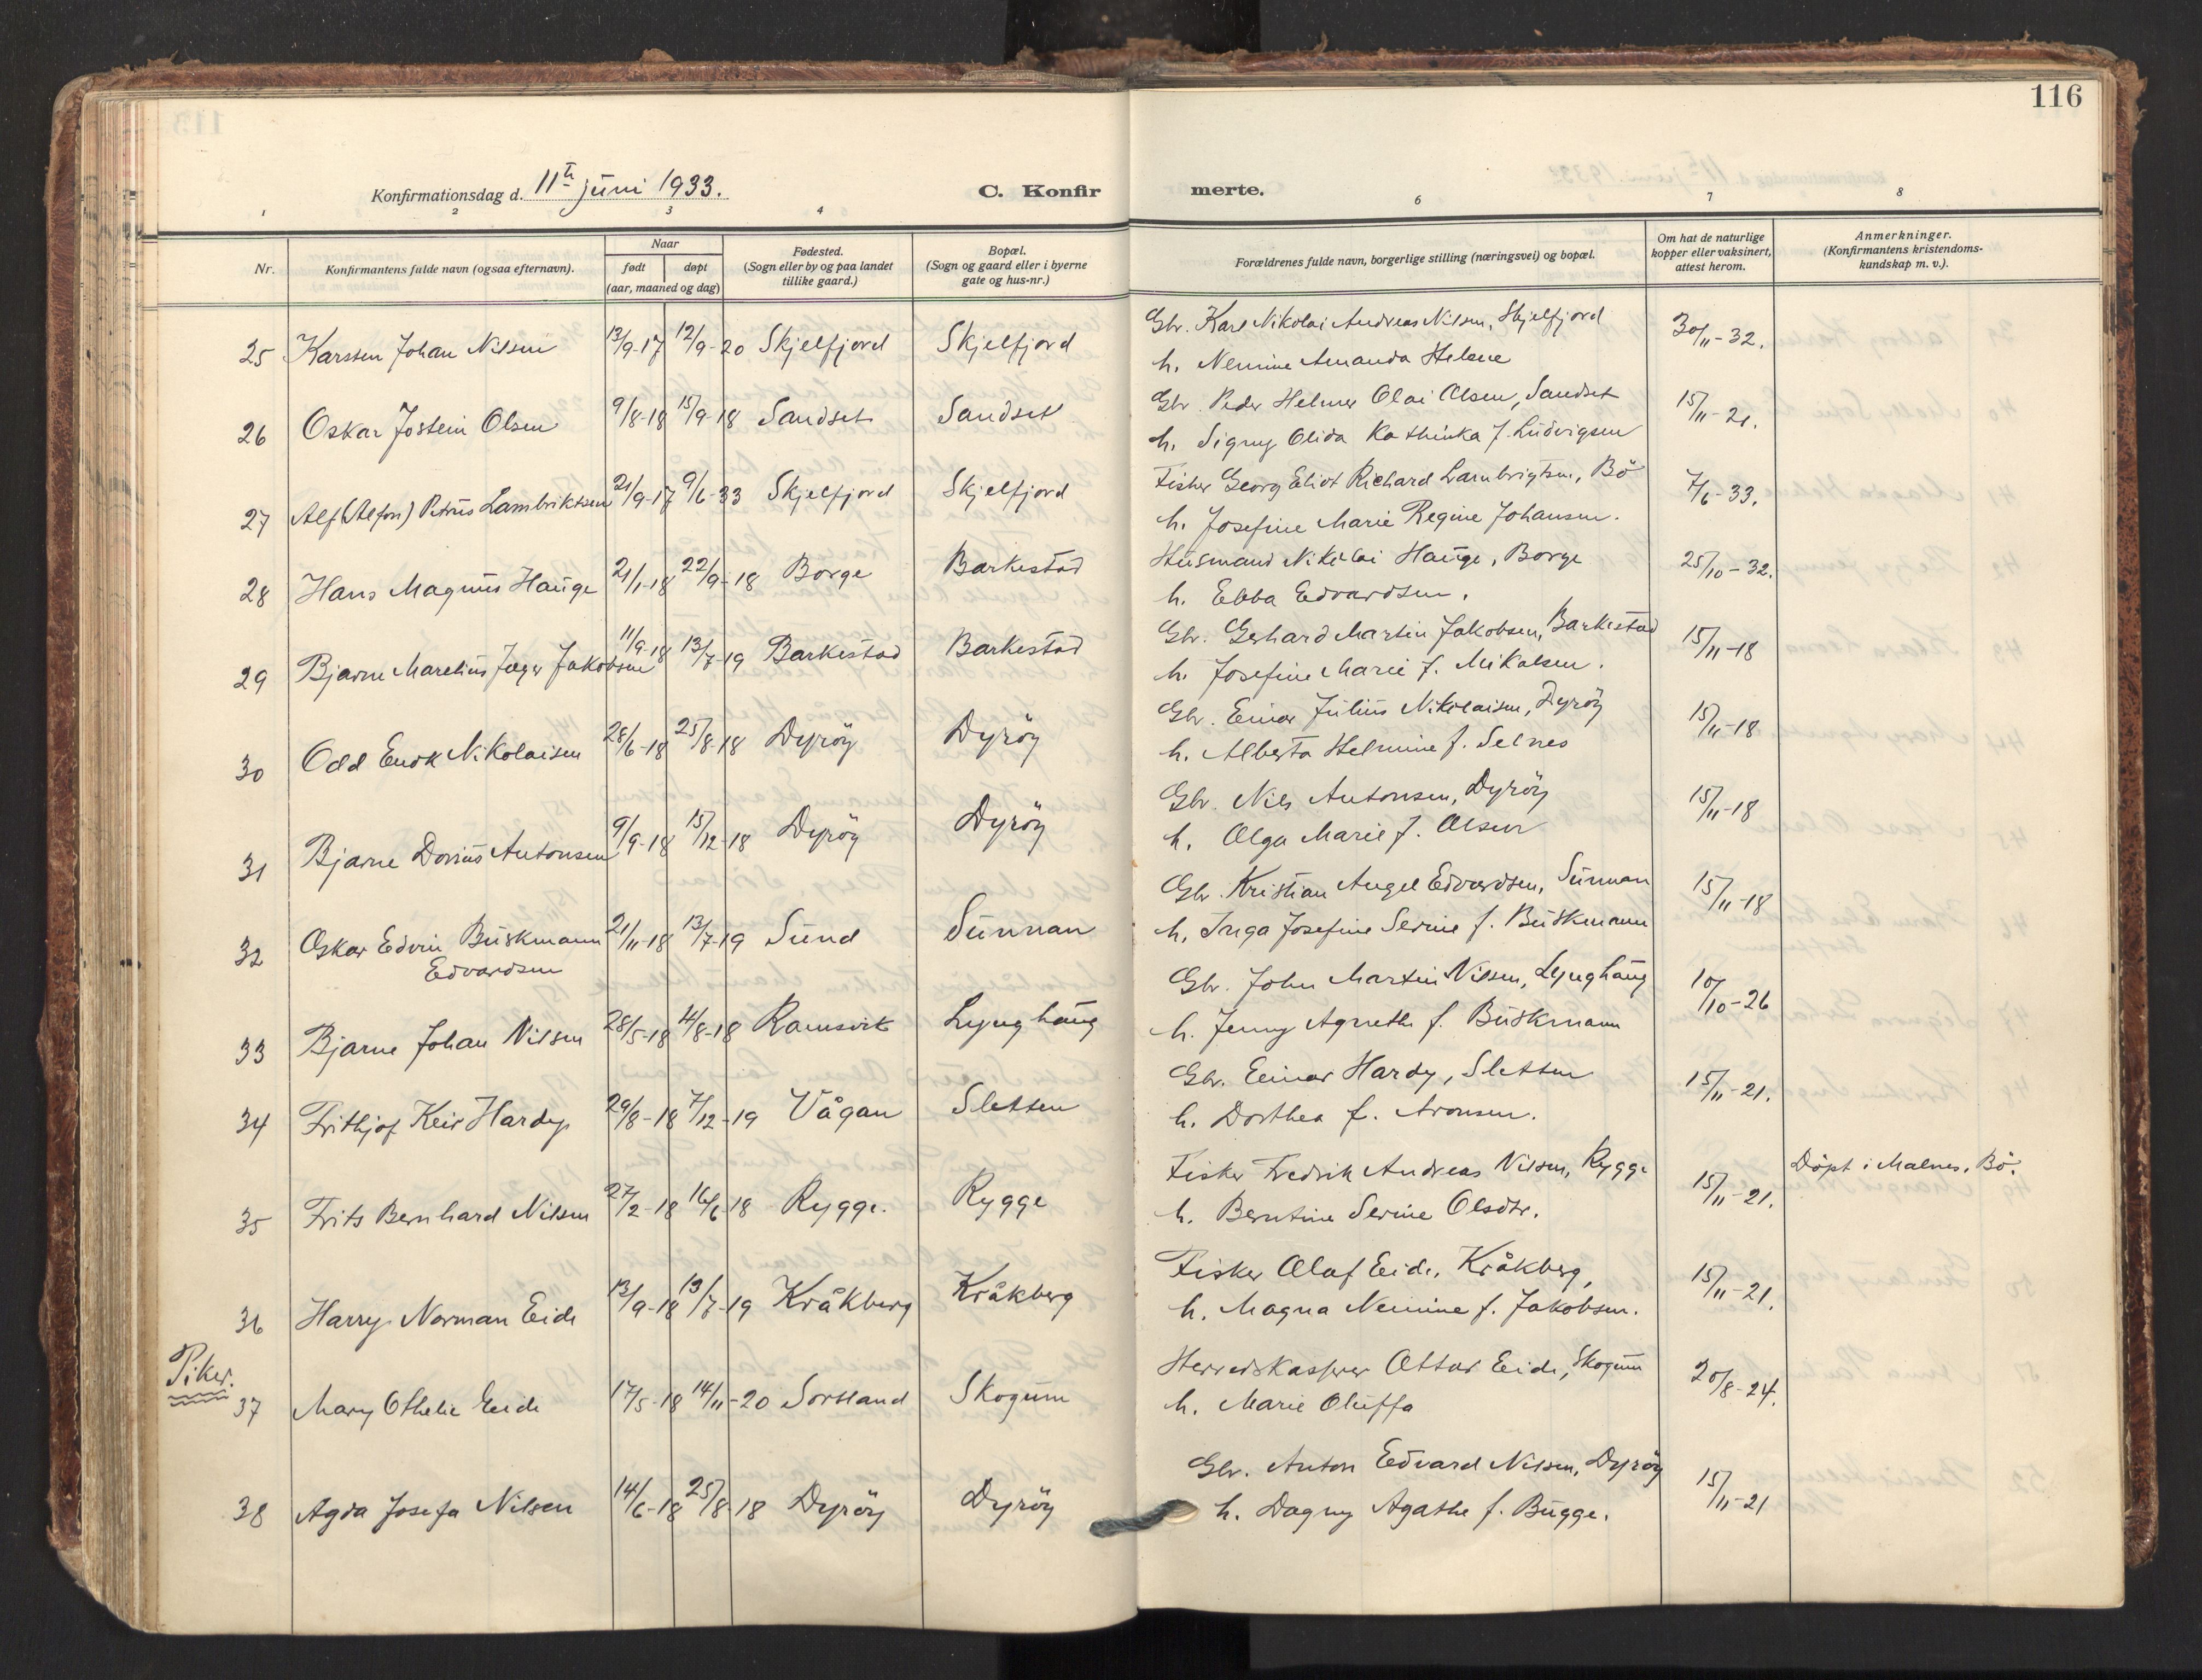 116
Konfirmationsdag d. 11te juni 1933.
C. Konfir
merte.
1 2 3 4 6 7 8
Nr.
Konfirmantens fulde navn (ogsaa efternavn).
Naar
født døpt
(aar, maaned og dag)
Fødested.
(Sogn eller by og paa landet
tillike gaard.)
Bopæl.
(Sogn og gaard eller i byerne
gate og hus-nr.)
Forældrenes fulde navn, borgerlige stilling (næringsvei) og bopæl.
Om hat de naturlige
kopper eller vaksinert,
attest herom.
Anmerkninger.
(Konfirmantens kristendoms-
kundskap m. v.).
25 Karsten Johan Nilsen 13/9-17 12/9-20 Skjelfjord Skjelfjord Gbr. Karl Nikolai Andreas Nilsen, Skjelfjord 30/11-32.
h. Nemine Amanda Helene
26 Oskar Jostein Olsen 9/8-18 15/9-18 Sandset Sandset Gbr. Peder Helmer Olai Olsen, Sandset 15/11-21.
h. Signy Olida Kathinka f. Ludvigsen
27 Alf (Alfon) Petrus Lambriktsen 21/9-17 9/6-33 Skjelfjord Skjelfjord Fisker Georg Eliot Richard Lambrigtsen, Bö 7/6-33.
h. Josefine Marie Regine Johansen.
28 Hans Magnus Hauge 21/1-18 22/9-18 Borge Barkestad Husmand Nikolai Hauge, Borge 25/10-32.
h. Ebba Edvardsen.
29 Bjarne Marelius Jæger Jakobsen 11/9-18 13/7-19 Barkestad Barkestad Gbr. Gerhard Martin Jakobsen, Barkestad 15/11-18
h. Josefine Marie f. Mikalsen.
30 Odd Enok Nikolaisen 28/6-18 25/8-18 Dyröy Dyröy Gbr. Einar Julius Nikolaisen, Dyröy 15/11-18
h. Alberta Helmine f. Selnes
31 Bjarne Dorius Antonsen 9/9-18 15/12-18 Dyröy Dyröy Gbr. Nils Antonsen, Dyröy 15/11-18
h. Olga Marie f. Olsen
32 Oskar Edvin Buskmann 21/11-18 13/7-19 Sund Sunnan Gbr. Kristian Angel Edvardsen, Sunnan 15/11-18
Edvardsen h. Inga Josefine Serine f. Buskmann
33 Bjarne Johan Nilsen 28/5-18 4/8-18 Ramsvik Lynghaug Gbr. John Martin Nilsen, Lynghaug 10/10-26
h. Jenny Agnethe f. Buskmann
34 Frithjof Keir Hardy 29/8-18 7/12-19 Vågan Sletten Gbr. Einar Hardy, Sletten 15/11-21.
h. Dorthea f. Aronsen.
35 Frits Bernhard Nilsen 27/2-18 16/6-18 Rygge. Rygge Fisker Fredrik Andreas Nilsen, Rygge 15/11-21. Döpt i Malnes, Bö.
h. Berntine Serine Olsdtr.
36 Harry Norman Eide 13/9-18 13/7-19 Kråkberg Kråkberg Fisker Olaf Eide, Kråkberg, 15/11-21.
h. Magna Nemine f. Jakobsen.
Piker.
37 Mary Othelie Eide 17/5-18 14/11-20 Sortland Skogum Herredskasserer Ottar Eide, Skogum 20/8-24.
h. Marie Oluffa
38 Agda Josefa Nilsen 14/6-18 25/8-18 Dyröy Dyröy Gbr. Anton Edvard Nilsen, Dyröy 15/11-21
h. Dagny Agathe f. Bugge.